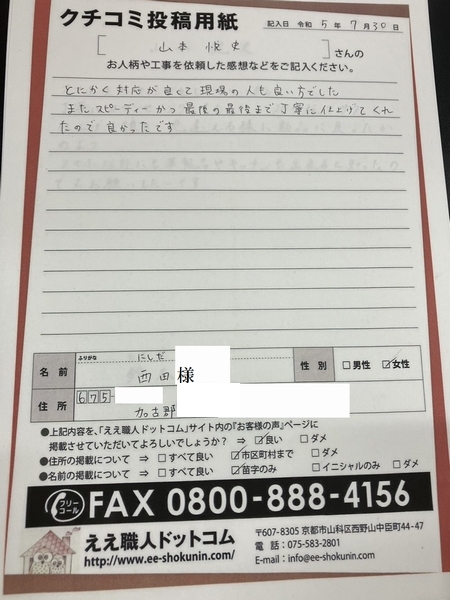 クチコミ投稿用紙
記入日 令和 5 年 7 月 30 日
山本 悦史 さんの
お人柄や工事を依頼した感想などをご記入ください。
とにかく対応が良くて現場の人も良い方でした
またスピーディーかつ最後の最後まで丁寧に仕上げてくれ
たので良かったです
ふりがな にしだ
名前 西田 様 性別 □男性 ☑女性
住所 675-
加古郡
●上記内容を、「ええ職人ドットコム」サイト内の『お客様の声』ページに
掲載させていただいてよろしいでしょうか? ⇒ ☑良い □ダメ
●住所の掲載について ⇒ □すべて良い ☑市区町村まで □ダメ
●名前の掲載について ⇒ □すべて良い ☑苗字のみ □イニシャルのみ □ダメ
フリーコール FAX 0800-888-4156
ええ職人ドットコム
http://www.ee-shokunin.com/
〒607-8305 京都市山科区西野山中臣町44-47
電話:075-583-2801
E-mail:info@ee-shokunin.com